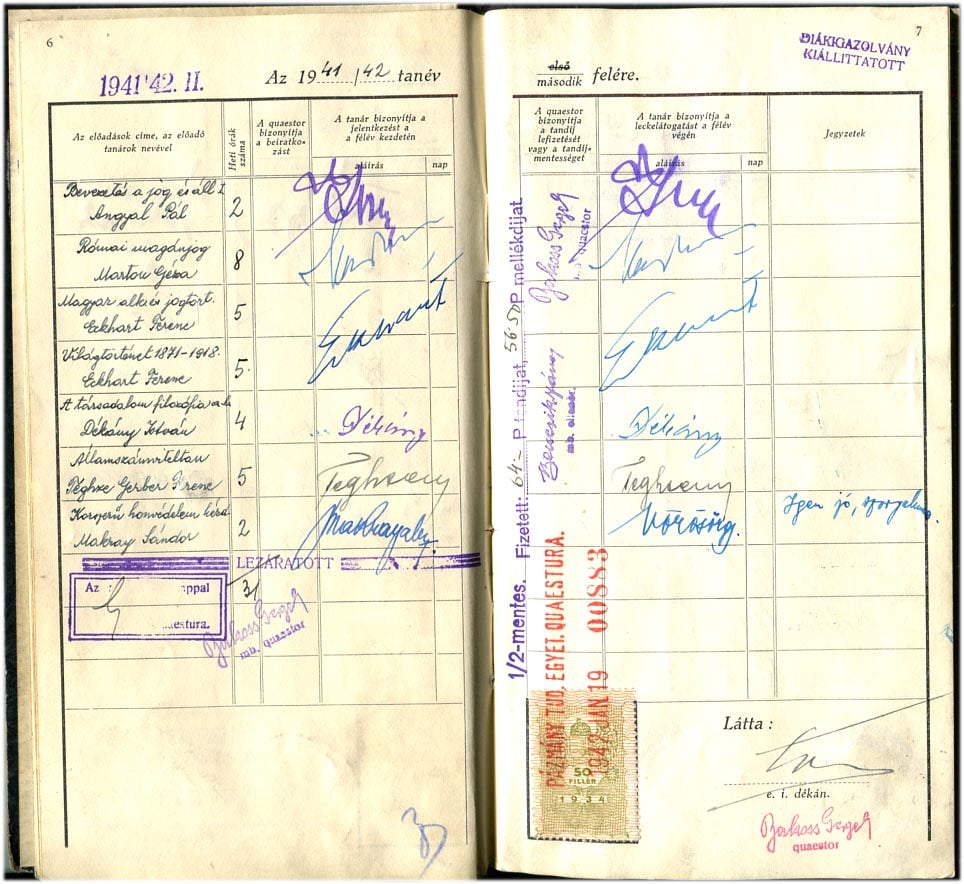 6
1941'42. II.
Az 1941/42 tanév
Az előadások címe, az előadó
tanárok nevével
Heti órák
száma
A quaestor
bizonyítja
a beiratko-
zást
A tanár bizonyítja a
jelentkezést a
félév kezdetén
aláírás
nap
Bevezetés a jog és áll. t.
Angyal Pál
2
Római magánjog
Marton Géza
8
Magyar alk. és jogtört.
Eckhart Ferenc
5
Világtörténet 1871-1918.
Eckhart Ferenc
5
A társadalom filozófia
Dékány István
4
Dékány
Államszámviteltan
Téghze Gerber Ferenc
5
Korszerű honvédelem kérd
Makray Sándor
2
LEZÁRATOTT
Az
appal
aestura.
31
mb. quaestor
7
DIÁKIGAZOLVÁNY
KIÁLLITTATOTT
első
második felére.
A quaestor
bizonyítja
a tandíj
lefizetését
vagy a tandíj-
mentességet
A tanár bizonyítja a
leckelátogatást a félév
végén
aláírás
nap
Jegyzetek
1/2-mentes. Fizetett: 64- P tandíjat, 56.50 P mellékdíjat
quaestor
mb. ellenőr.
Dékány
Igen jó, szorgalmas.
PÁZMÁNY TUD. EGYET. QUAESTURA.
1942 JAN 19 00883
50
FILLÉR
1934
Látta :
e. i. dékán.
quaestor